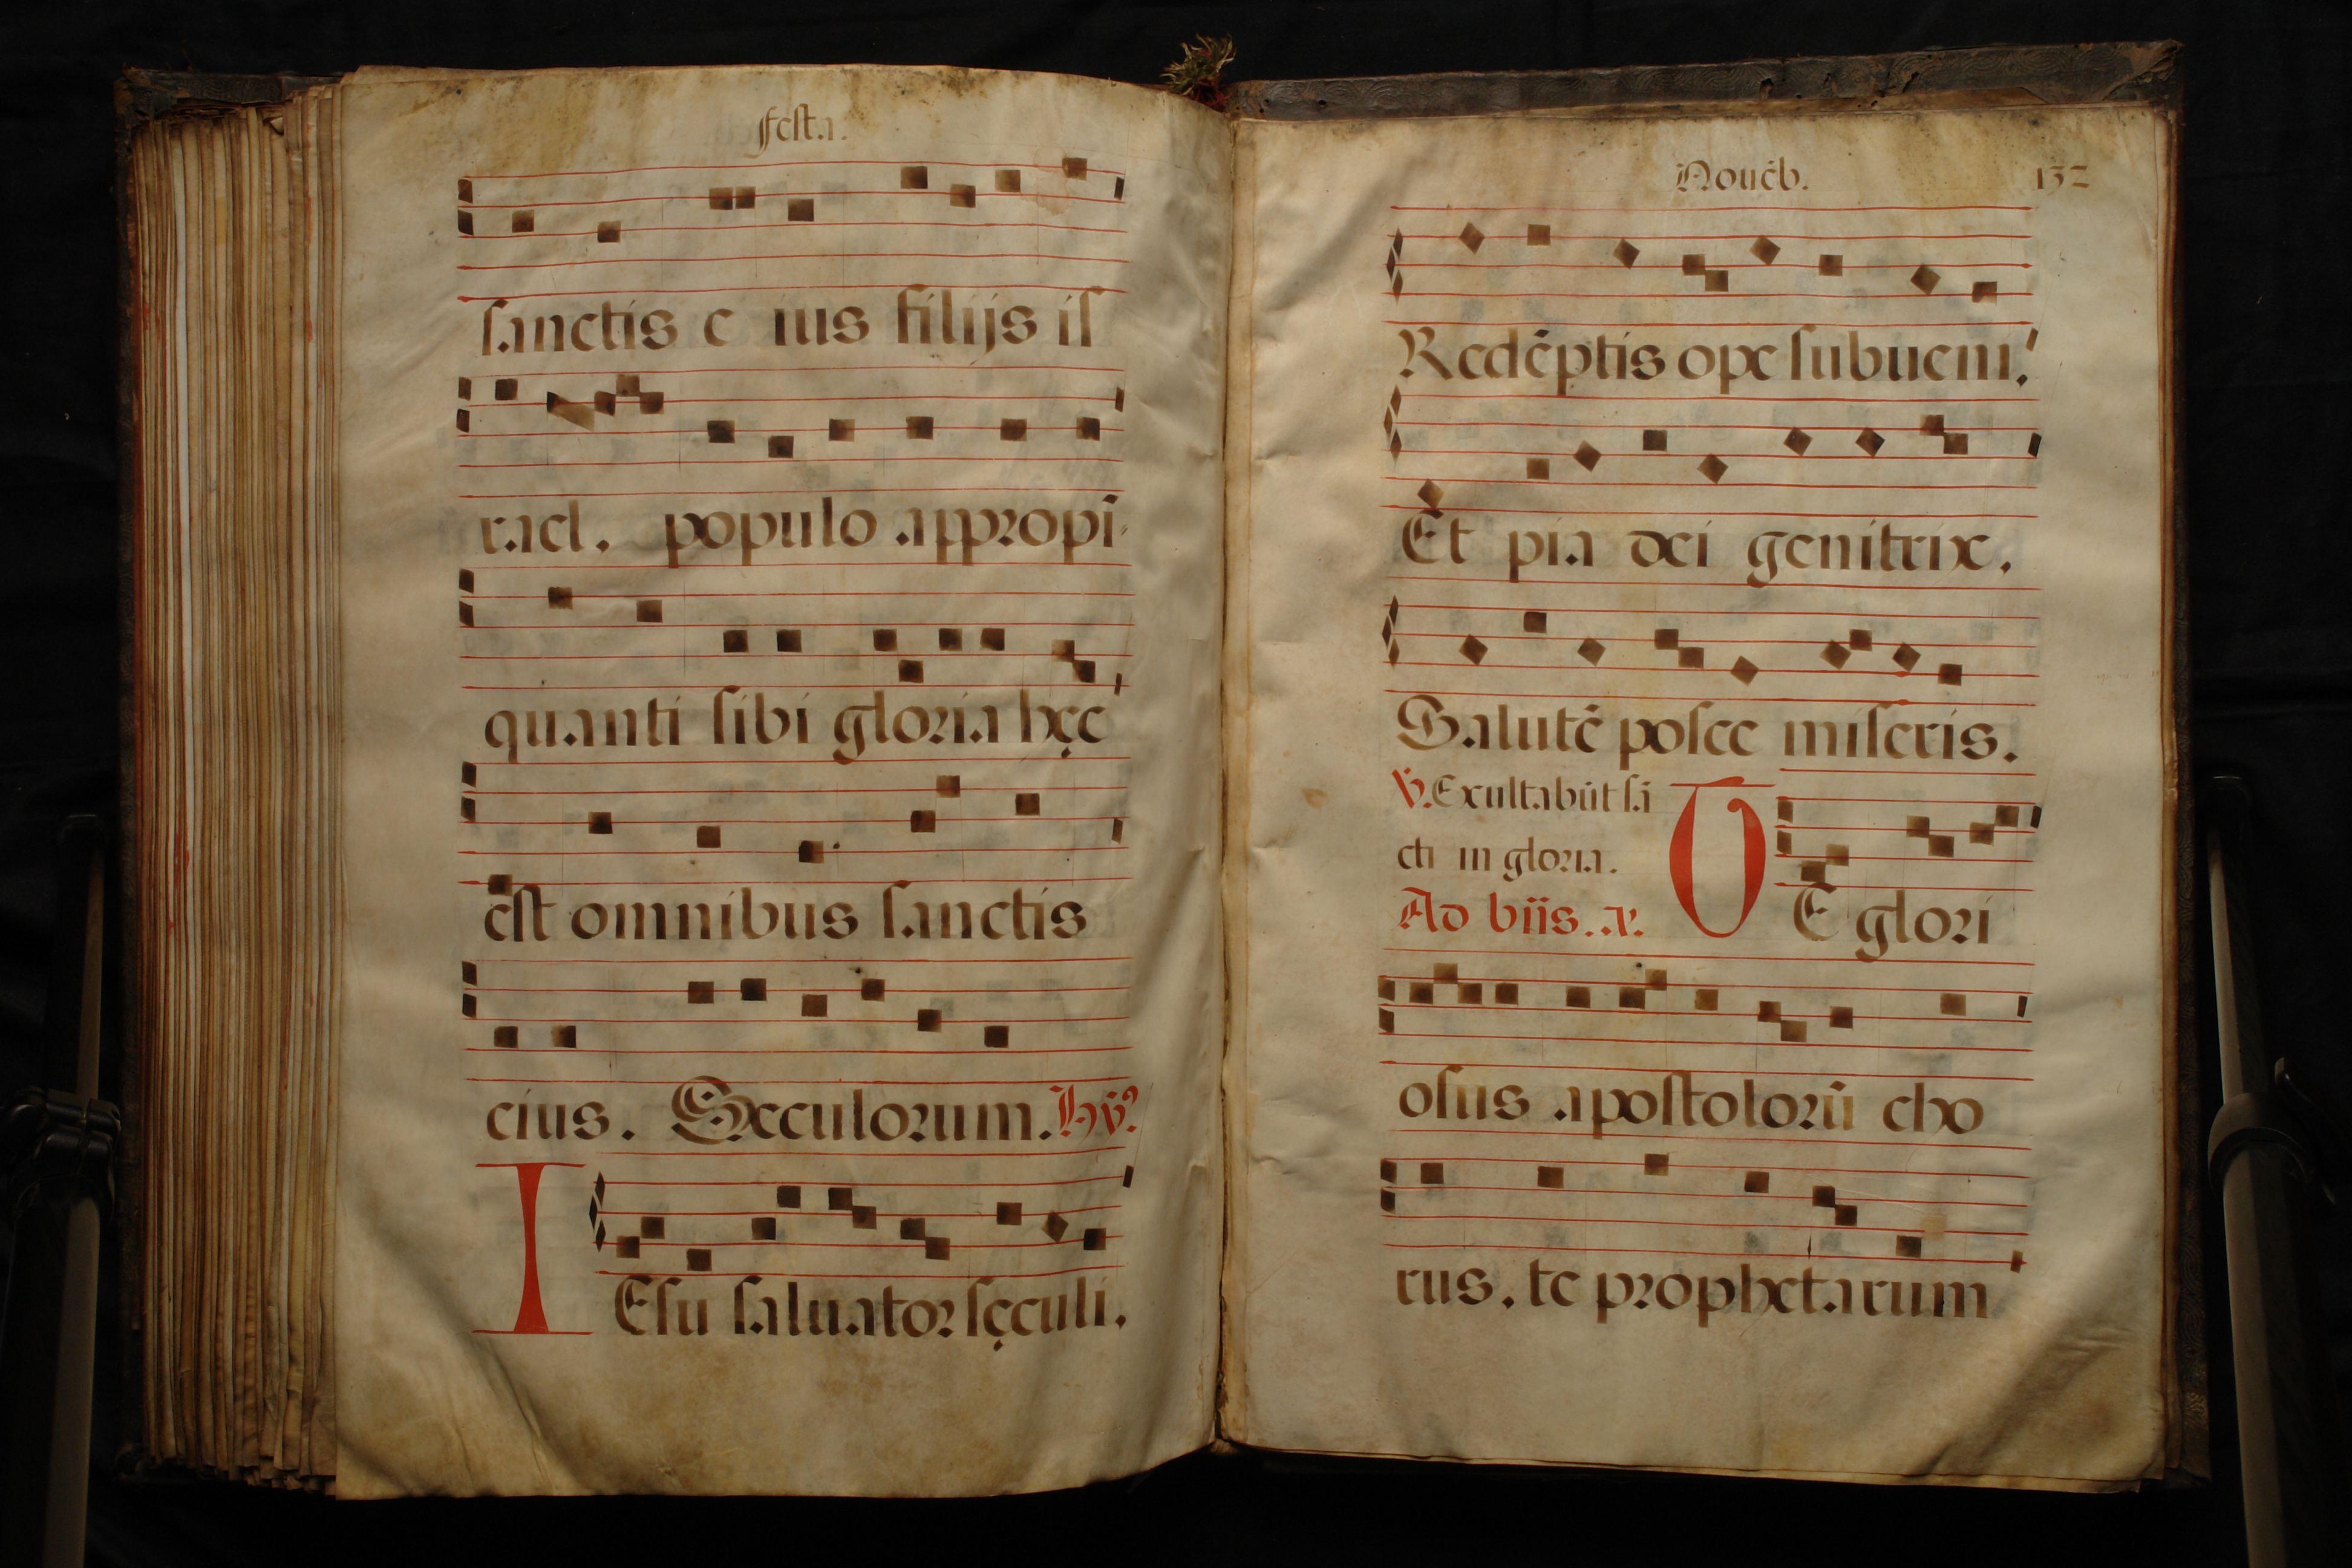 festa.
sanctis e ius filijs is
rael. populo appropi-
quanti sibi gloria hęc
est omnibus sanctis
eius. Seculorum. Hỹ?
IEsu saluator sęculi.
Nouēb. 132
Redēptis ope subueni!
Et pia dei genitrix.
Salutē posce miseris.
℣. Exultabūt sā
cti in gloria.
Ad bñs. a.
TE glori
osus apostolorū cho
rus. te prophetarum